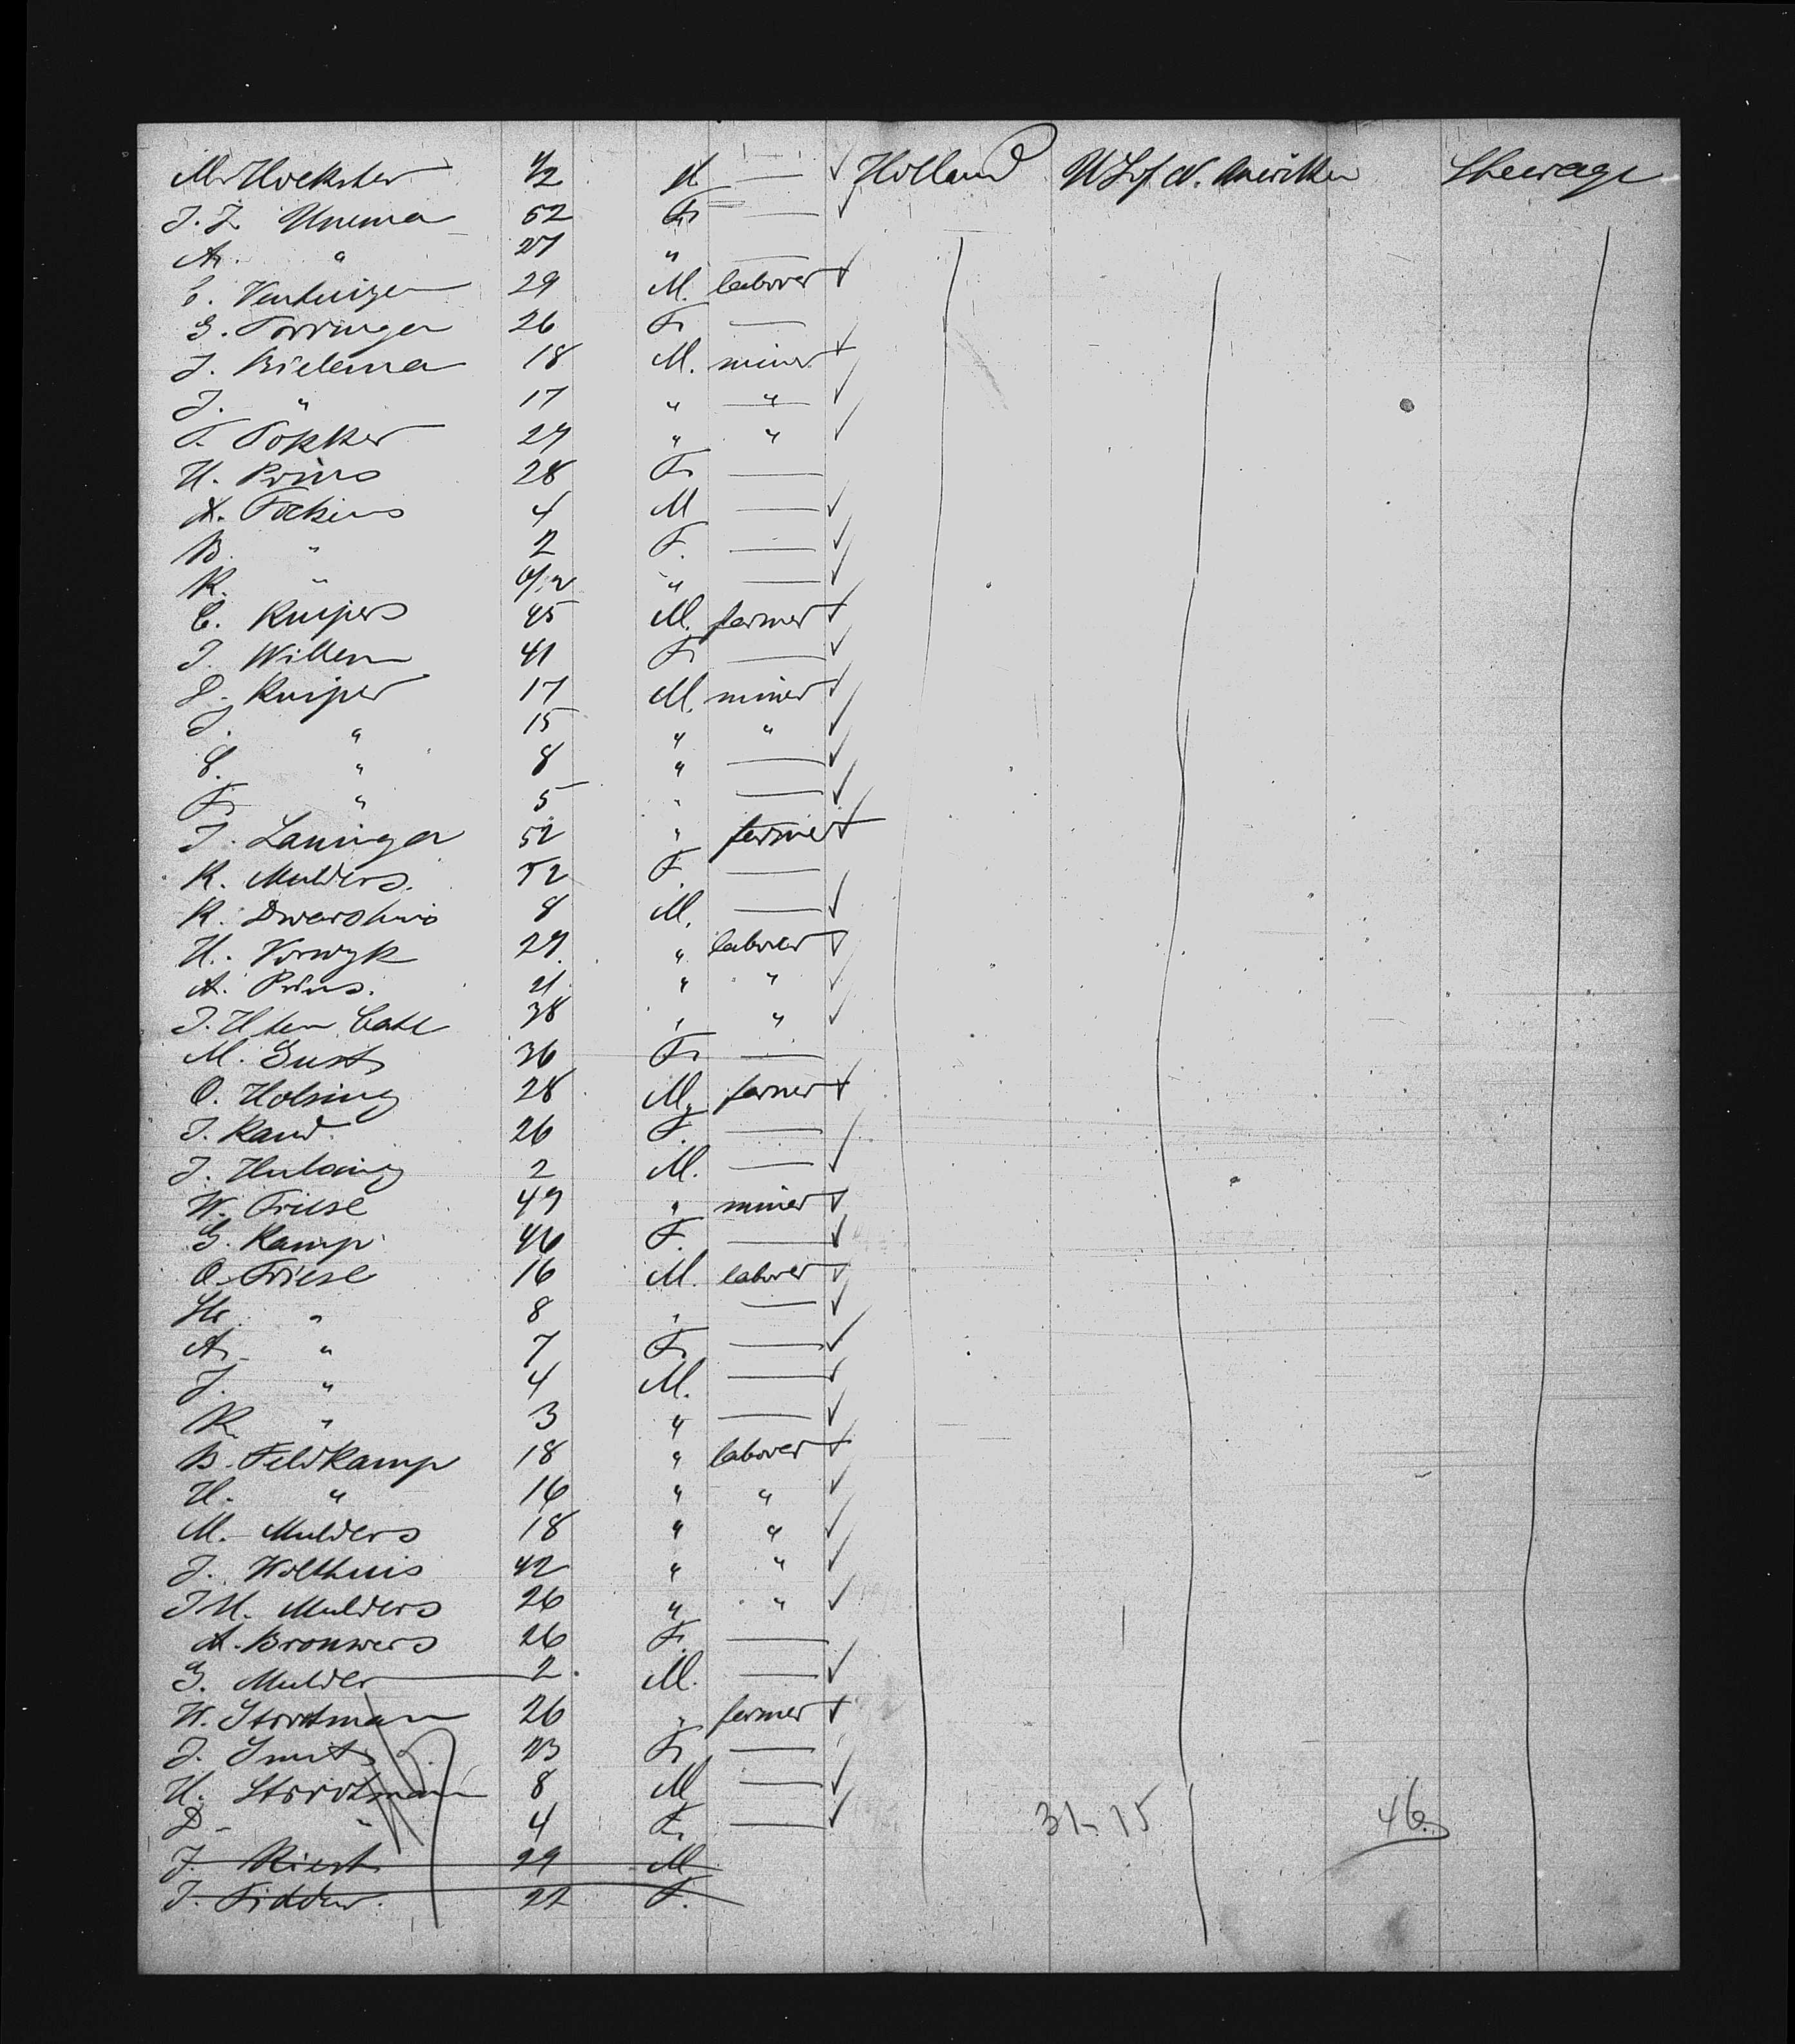 M. Hoekster ½ — ✓ Holland U.S. of N. Amerika Steerage
J. J. Unema 52 F. — ✓
A. " 27 " —
29 M. laborer ✓
G. Torringa 26 F. —
J. Bielema 18 M. miner ✓
J. " 17 " " ✓
T. Fokker 27 " " ✓
H. Prins 28 F. —
A. Fockens 4 M — ✓
B. " 2 F. — ✓
R. " " — ✓
C. Kuipers 45 M. farmer ✓
J. Willem 41 F. — ✓
P. Kuiper 17 M. miner ✓
J. " 15 " " ✓
C. " 8 " — ✓
F. " 5 " — ✓
J. Laninga 52 " farmer ✓
K. Mulders. 52 F. —
R. Dwarshuis 8 M. — ✓
H. Vorwyk 27 " laborer ✓
A. Prins. 21 " " ✓
J. H ten Cate 38 " " ✓
M. Gust 36 F. —
O. Holsing 28 M. farmer ✓
J. Rand. 26 F. —
J. Hulsing 2 M. — ✓
W. Friese 49 " miner ✓
G. Kamp 46 F. — ✓
O. Friese 16 M. laborer ✓
Hr. " 8 " — ✓
A. " 7 F. — ✓
J. " 4 M. — ✓
R. " 3 " — ✓
B. Feldkamp 18 " laborer ✓
H. " 16 " " ✓
M. Mulders 18 " " ✓
J. Wolthuis 42 " " ✓
J H. Mulders 26 " " ✓
A. Brouwers 26 F. —
G. Mulder 2. M. — ✓
W. Strootman 26 " farmer ✓
J. Smit 23 F. —
H. Strootman 8 M — ✓
D. " 4 F. — ✓ 31-15 46.
J. Kiest 29 M
J. Fidder. 22 F.